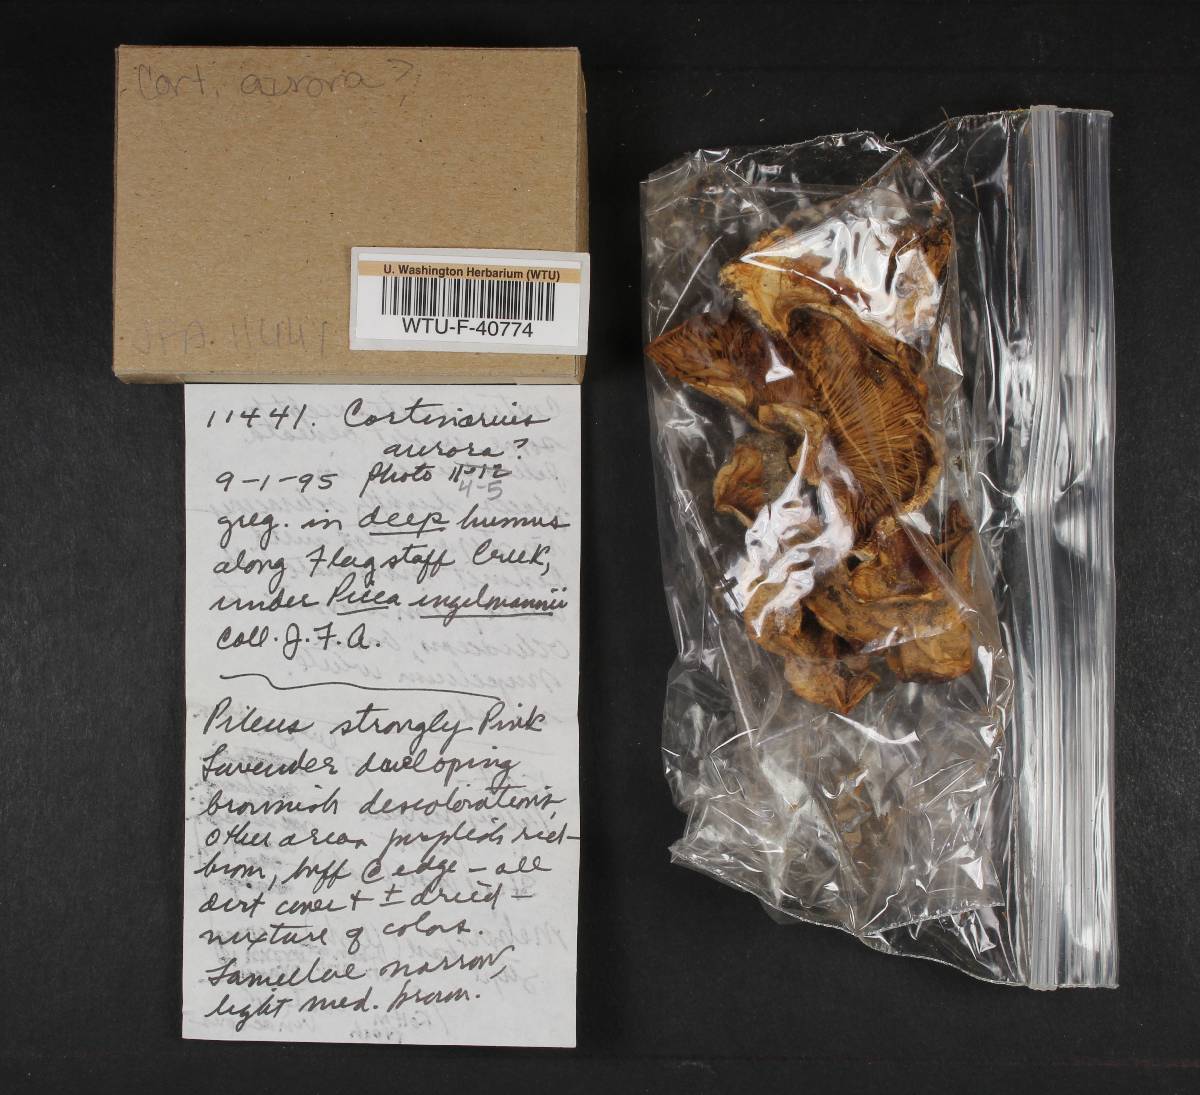 Cort. aurora?
U. Washington Herbarium (WTU)
WTU-F-40774
JFA 11441
11441. Cortinarius
aurora?
9-1-95 Photo 11-12
4-5
greg. in deep humus
along Flagstaff Creek,
under Picea engelmannii
coll. J. F. A.
Pileus strongly Pink
Lavender developing
brownish descolorations,
other areas purplish red-
brown, buff @ edge - all
dirt cover + ± dried -
mixture of colors.
Lamellae narrow,
light med. brown.